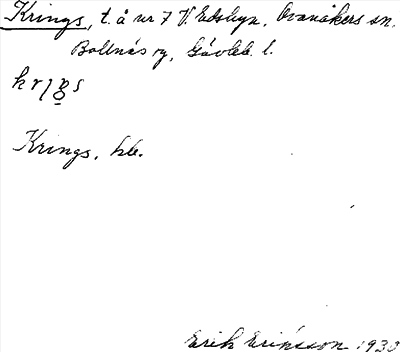 Krings, t. å nr 7 V. Edsbyn, Ovanåkers sn.
Bollnäs rg, Gävleb. l.
Krings, hb.
Erik Eriksson 1930